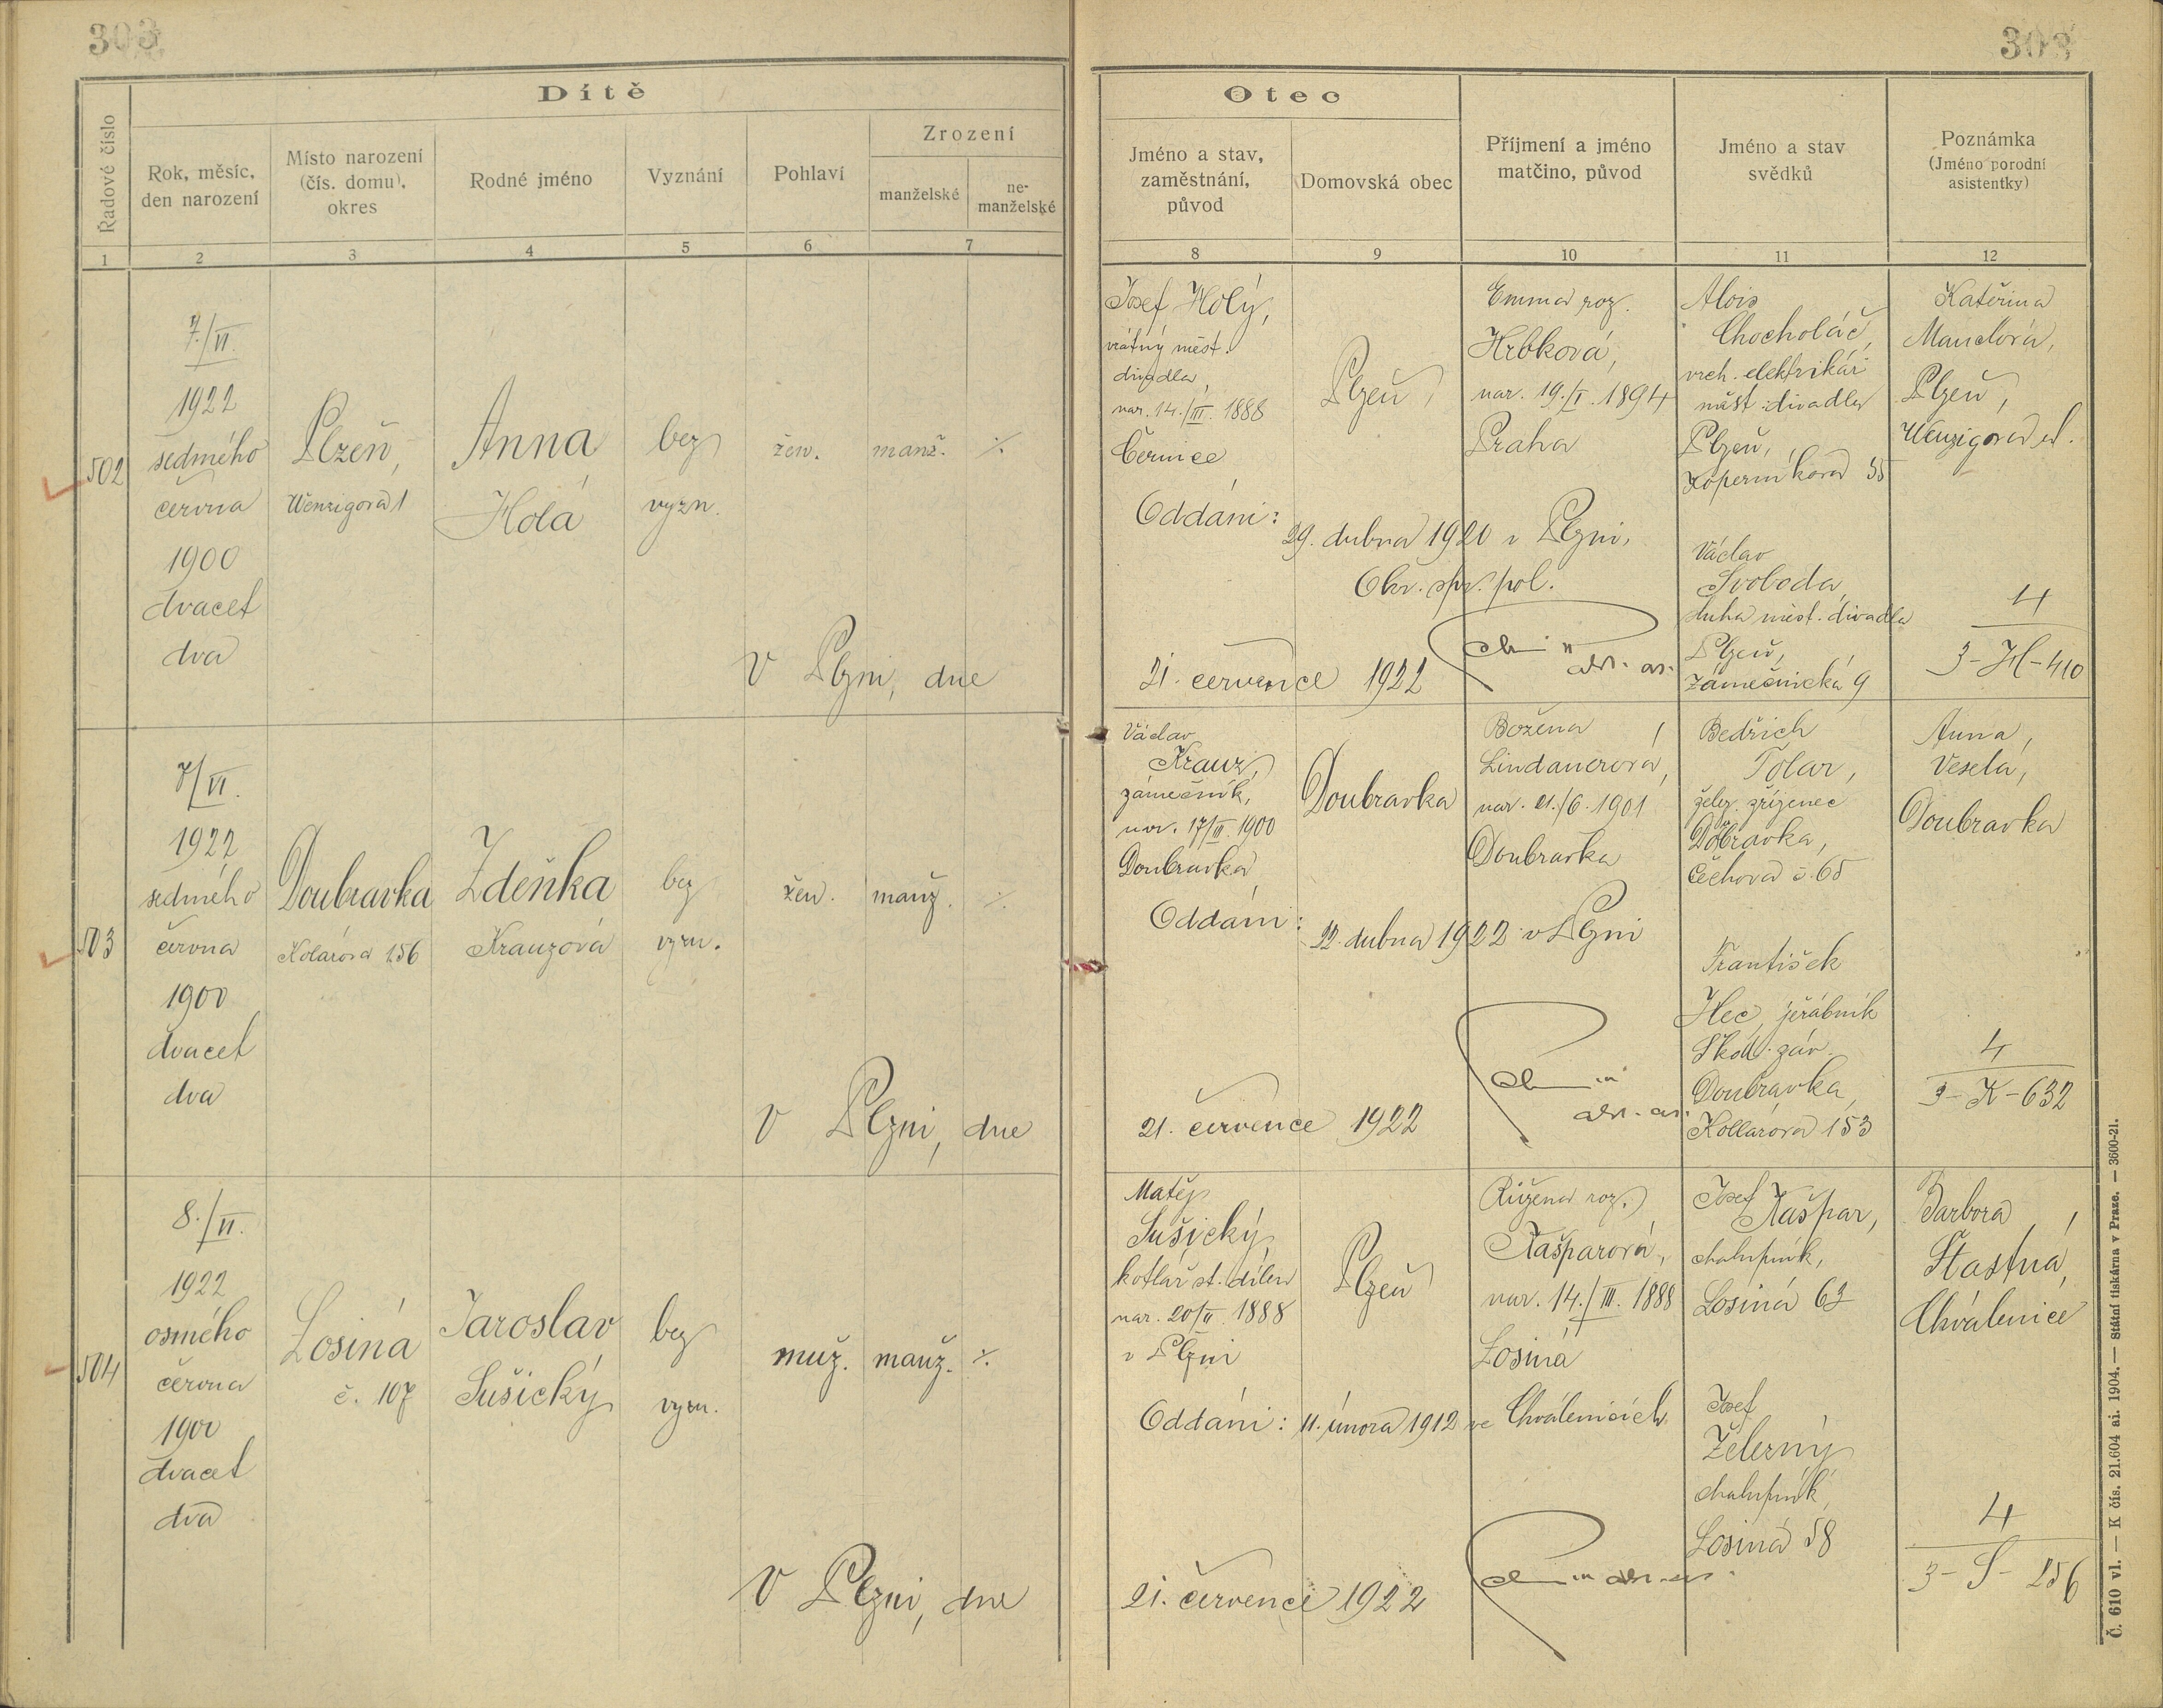 303
303
Dítě
Řadové číslo
Rok, měsíc,
den narození
Místo narození
(čís. domu),
okres
Rodné jméno
Vyznání
Pohlaví
Zrození
manželské
ne-
manželské
1
2
3
4
5
6
7
Otec
Jméno a stav,
zaměstnání,
původ
Domovská obec
Příjmení a jméno
matčino, původ
Jméno a stav
svědků
Poznámka
(Jméno porodní
asistentky)
8
9
10
11
12
502
7./VI.
1922
sedmého
června
1900
dvacet
dva
Plzeň,
Wenzigova 1
Anna
Holá
bez
vyzn.
žen.
manž.
Josef Holý,
vrátný měst.
divadla,
nar. 14./III. 1888
Černice
Plzeň
Emma roz.
Hrbková,
nar. 19./I. 1894
Praha
Oddáni:
29. dubna 1920 v Plzni,
Okr. spr. pol.
Alois
Chocholáč,
vrch. elektrikář
měst. divadla
Plzeň,
Koperníkova 35
Václav
Svoboda,
sluha měst. divadla
Plzeň,
Zámečnická 9
Kateřina
Mandlová,
Plzeň,
Wenzigova ul.
4
3-H-410
V Plzni, dne
21. července 1922
503
7/VI.
1922
sedmého
června
1900
dvacet
dva
Doubravka
Kolárova 156
Zdeňka
Krauzová
bez
vyzn.
žen.
manž.
Václav
Krauz,
zámečník,
nar. 17/II. 1900
Doubravka
Doubravka
Božena
Lindauerová,
nar. 21./6. 1901
Doubravka
Oddáni:
22. dubna 1922 v Plzni
Bedřich
Tolar,
želez. zřízenec
Doubravka,
Čechova č. 65
František
Hec, jeřábník
Škod. záv.
Doubravka,
Kollárova 153
Anna
Veselá,
Doubravka
4
3-K-632
V Plzni, dne
21. července 1922
504
8./VI.
1922
osmého
června
1900
dvacet
dva
Losiná
č. 107
Jaroslav
Sušický
bez
vyzn.
muž.
manž.
Matěj
Sušický
kotlář st. dílen
nar. 20/II. 1888
v Plzni
Plzeň
Růžena roz.
Kašparová,
nar. 14./III. 1888
Losiná
Oddáni: 11. února 1912 ve Chválenicích
Josef
Kašpar,
chalupník,
Losiná 63
Josef
Železný
chalupník,
Losiná 58
Barbora
Šťastná,
Chválenice
4
3-S-256
V Plzni, dne
21. července 1922
Č. 610 vl. — K čís. 21.604 ai. 1904. — Státní tiskárna v Praze. — 3600-21.